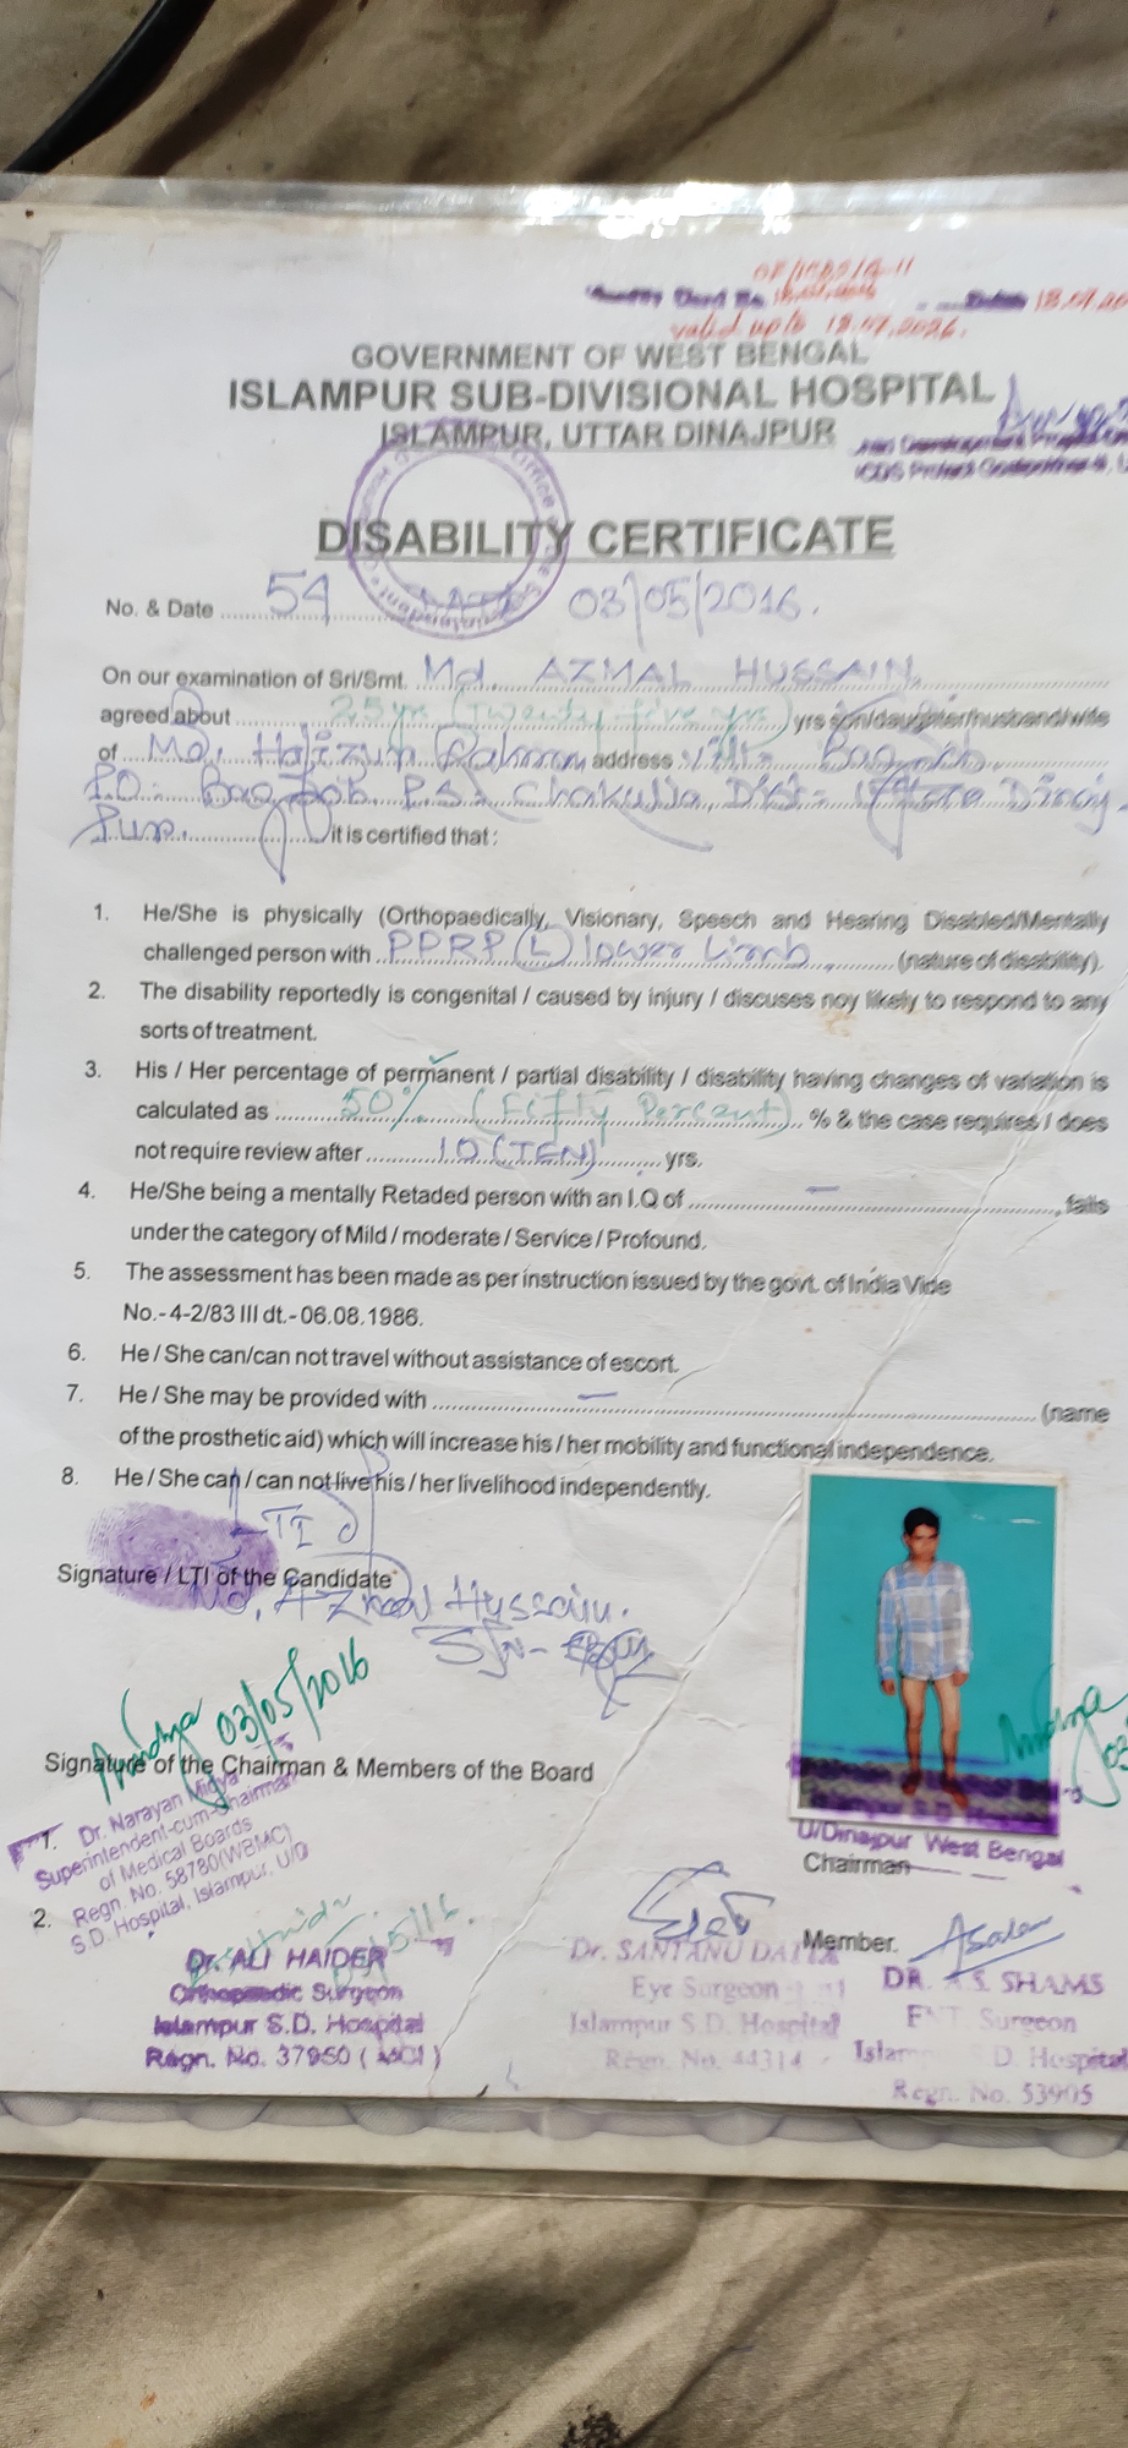 OF/ICDS/G-11
Card No. 18.07.2016 Date 18.07.20
valid upto 18.07.2026.
GOVERNMENT OF WEST BENGAL
ISLAMPUR SUB-DIVISIONAL HOSPITAL
ISLAMPUR, UTTAR DINAJPUR
ICDS Project
DISABILITY CERTIFICATE
No. & Date 54 03/05/2016.
On our examination of Sri/Smt. Md. AZMAL HUSSAIN.
agreed about 25 yrs (Twenty five yrs) yrs son/daughter/husband/wife
of Md. Hafizur Rahman address Vill:-
P.O:- P.S:- Chakulia, Dist:- Uttar Dinaj-
pur. it is certified that :
1. He/She is physically (Orthopaedically, Visionary, Speech and Hearing Disabled/Mentally
challenged person with PPRP (L) lower Limb. (nature of disability).
2. The disability reportedly is congenital / caused by injury / discuses noy likely to respond to any
sorts of treatment.
3. His / Her percentage of permanent / partial disability / disability having changes of variation is
calculated as 50% (Fifty Percent) % & the case requires / does
not require review after 10 (TEN) yrs.
4. He/She being a mentally Retaded person with an I.Q of – , falls
under the category of Mild / moderate / Service / Profound.
5. The assessment has been made as per instruction issued by the govt. of India Vide
No.- 4-2/83 III dt.- 06.08.1986.
6. He / She can/can not travel without assistance of escort.
7. He / She may be provided with – (name
of the prosthetic aid) which will increase his / her mobility and functional independence.
8. He / She can / can not live his / her livelihood independently.
LTI of
Signature / LTI of the Candidate
Md. Azmal Hussain.
03/05/2016
Signature of the Chairman & Members of the Board
1. Dr. Narayan Midya
Superintendent-cum-Chairman
of Medical Boards
Regn. No. 58780(WBMC)
S.D. Hospital, Islampur, U/D
U/Dinajpur West Bengal
Chairman
2.
Dr. ALI HAIDER
Orthopaedic Surgeon
Islampur S.D. Hospital
Regn. No. 37950 ( MCI )
Dr. SANTANU DATTA
Eye Surgeon
Islampur S.D. Hospital
Regn. No. 44314
Member.
DR. A.S. SHAMS
ENT Surgeon
S.D. Hospital
Regn. No. 53905